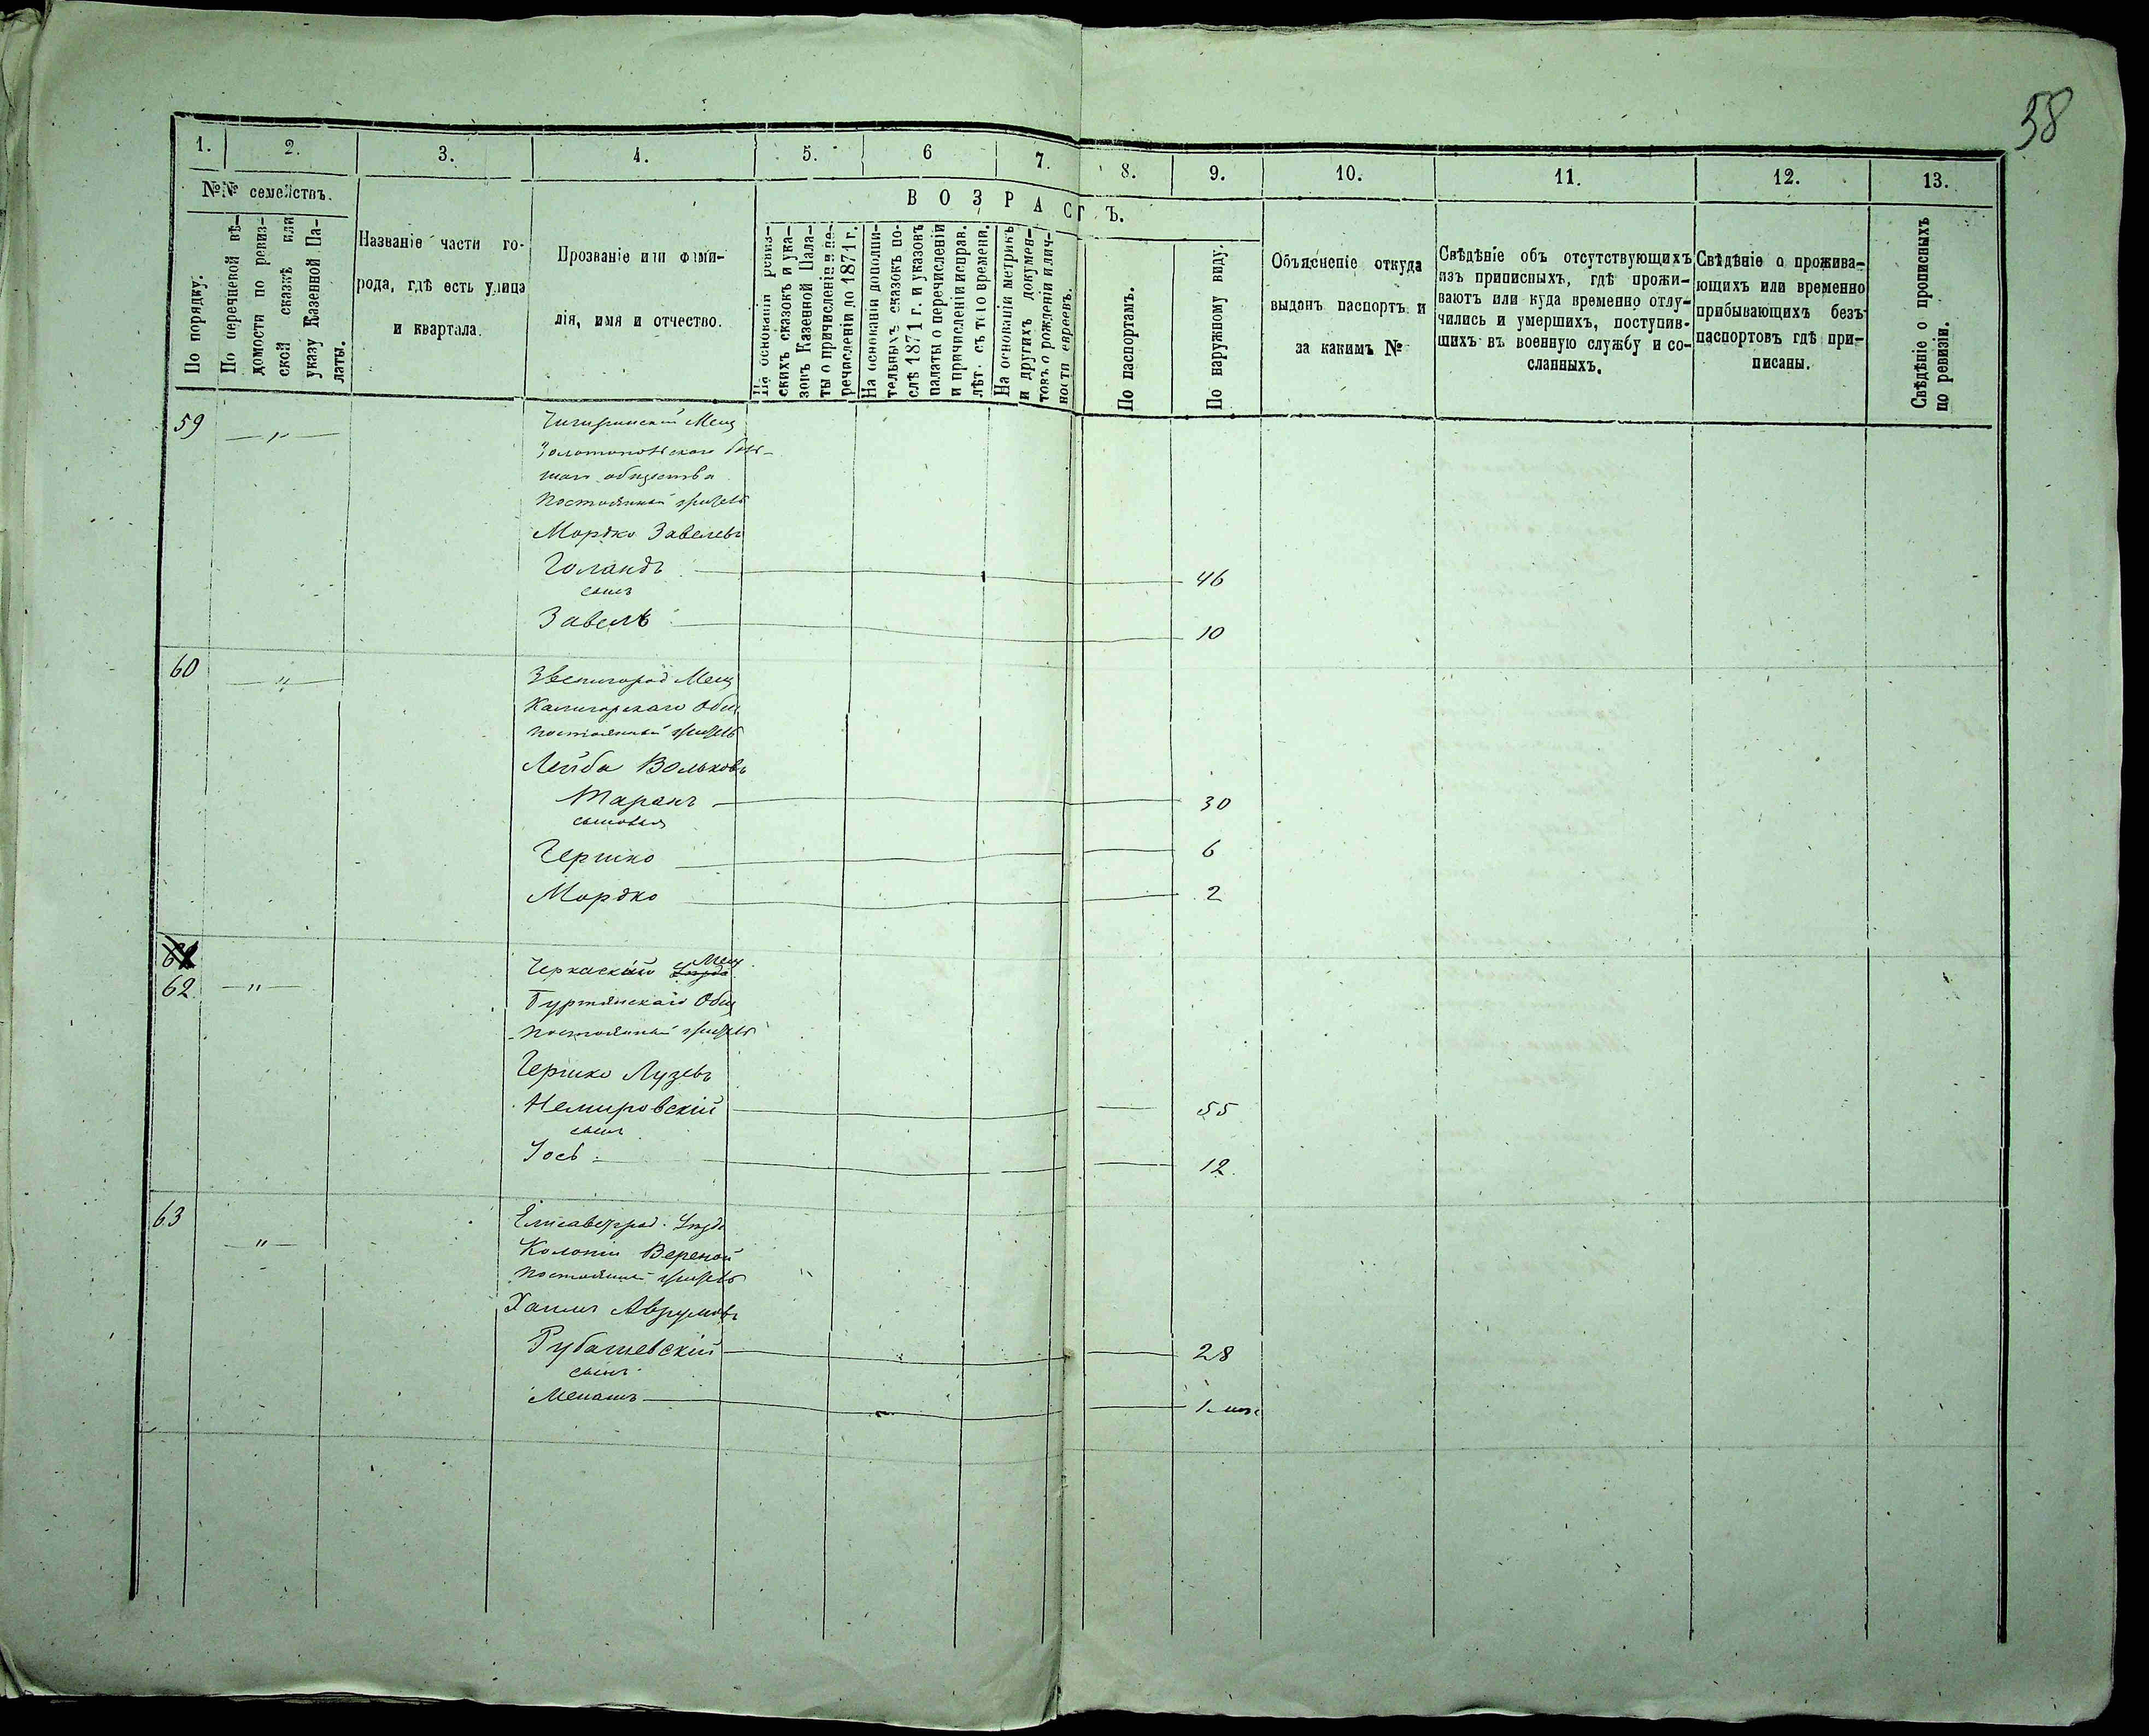 58
1. 2. 3. 4. 5. 6 7. 8. 9. 10. 11. 12. 13.
№№ семействъ.
ВОЗРАСТЪ.
По порядку.
По перечневой вѣ-
домости по ревиз-
ской сказкѣ или
указу Казенной Па-
латы.
Названіе части го-
рода, гдѣ есть улица
и квартала.
Прозваніе или фами-
лія, имя и отчество.
На основаніи ревиз-
скихъ сказокъ и ука-
зовъ Казенной Пала-
ты о причисленіи и пе-
речисленіи до 1871 г.
На основаніи дополни-
тельныхъ сказокъ по-
слѣ 1871 г. и указовъ
палаты о перечисленіи
и причисленіи исправ.
лѣт. съ того времени.
На основаніи метрикъ
и другихъ докумен-
товъ о рожденіи и лич-
ности евреевъ.
По паспортамъ.
По наружному виду.
Объясненіе откуда
выданъ паспортъ и
за какимъ №
Свѣдѣніе объ отсутствующихъ
изъ приписныхъ, гдѣ прожи-
ваютъ или куда временно отлу-
чились и умершихъ, поступив-
шихъ въ военную службу и со-
сланныхъ.
Свѣдѣніе о прожива-
ющихъ или временно
прибывающихъ безъ
паспортовъ гдѣ при-
писаны.
Свѣдѣніе о прописныхъ
по ревизіи.
59 — " — Чигиринскій Мещ
Золотоношскаго
шаго общества
постоянный житель
Мордко Завелевъ
Голандъ 46
сынъ
Завель 10
60 — " — Звенигород Мещ
Калигорскаго Общ
постоянный житель
Лейба Вольковъ
Таранъ 30
сыновья
Гершко 6
Мордко 2
61
62 — " — Черкаскій Уѣзда Мещ
Буртянскаго Общ
постоянный житель
Гершко Лузевъ
Немировскій 55
сынъ
Іось 12.
63 — " — Елисаветград. Уѣзда
Колоніи
постоянный житель
Хаимъ Аврумовъ
Рубашевскій 28
сынъ
Менашъ 1